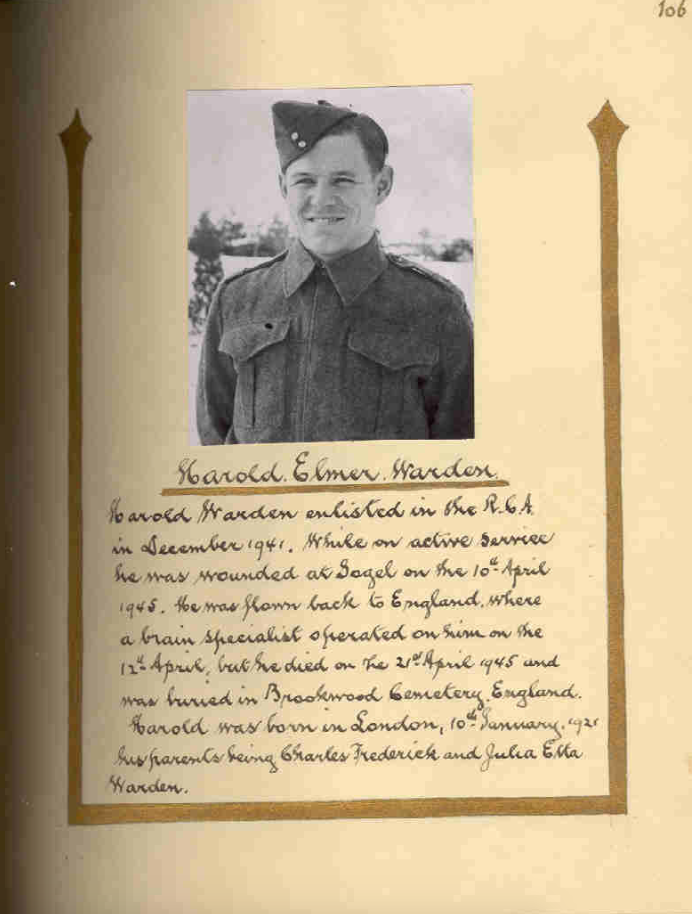 106
Harold. Elmer. Warden.
Harold Warden enlisted in the R.C.A
in December 1941. While on active service
he was wounded at Sogel on the 10th April
1945. He was flown back to England, where
a brain specialist operated on him on the
12th April, but he died on the 21st April 1945 and
was buried in Brookwood Cemetery, England.
Harold was born in London, 10th January, 1921
his parents being Charles Frederick and Julia Etta
Warden.